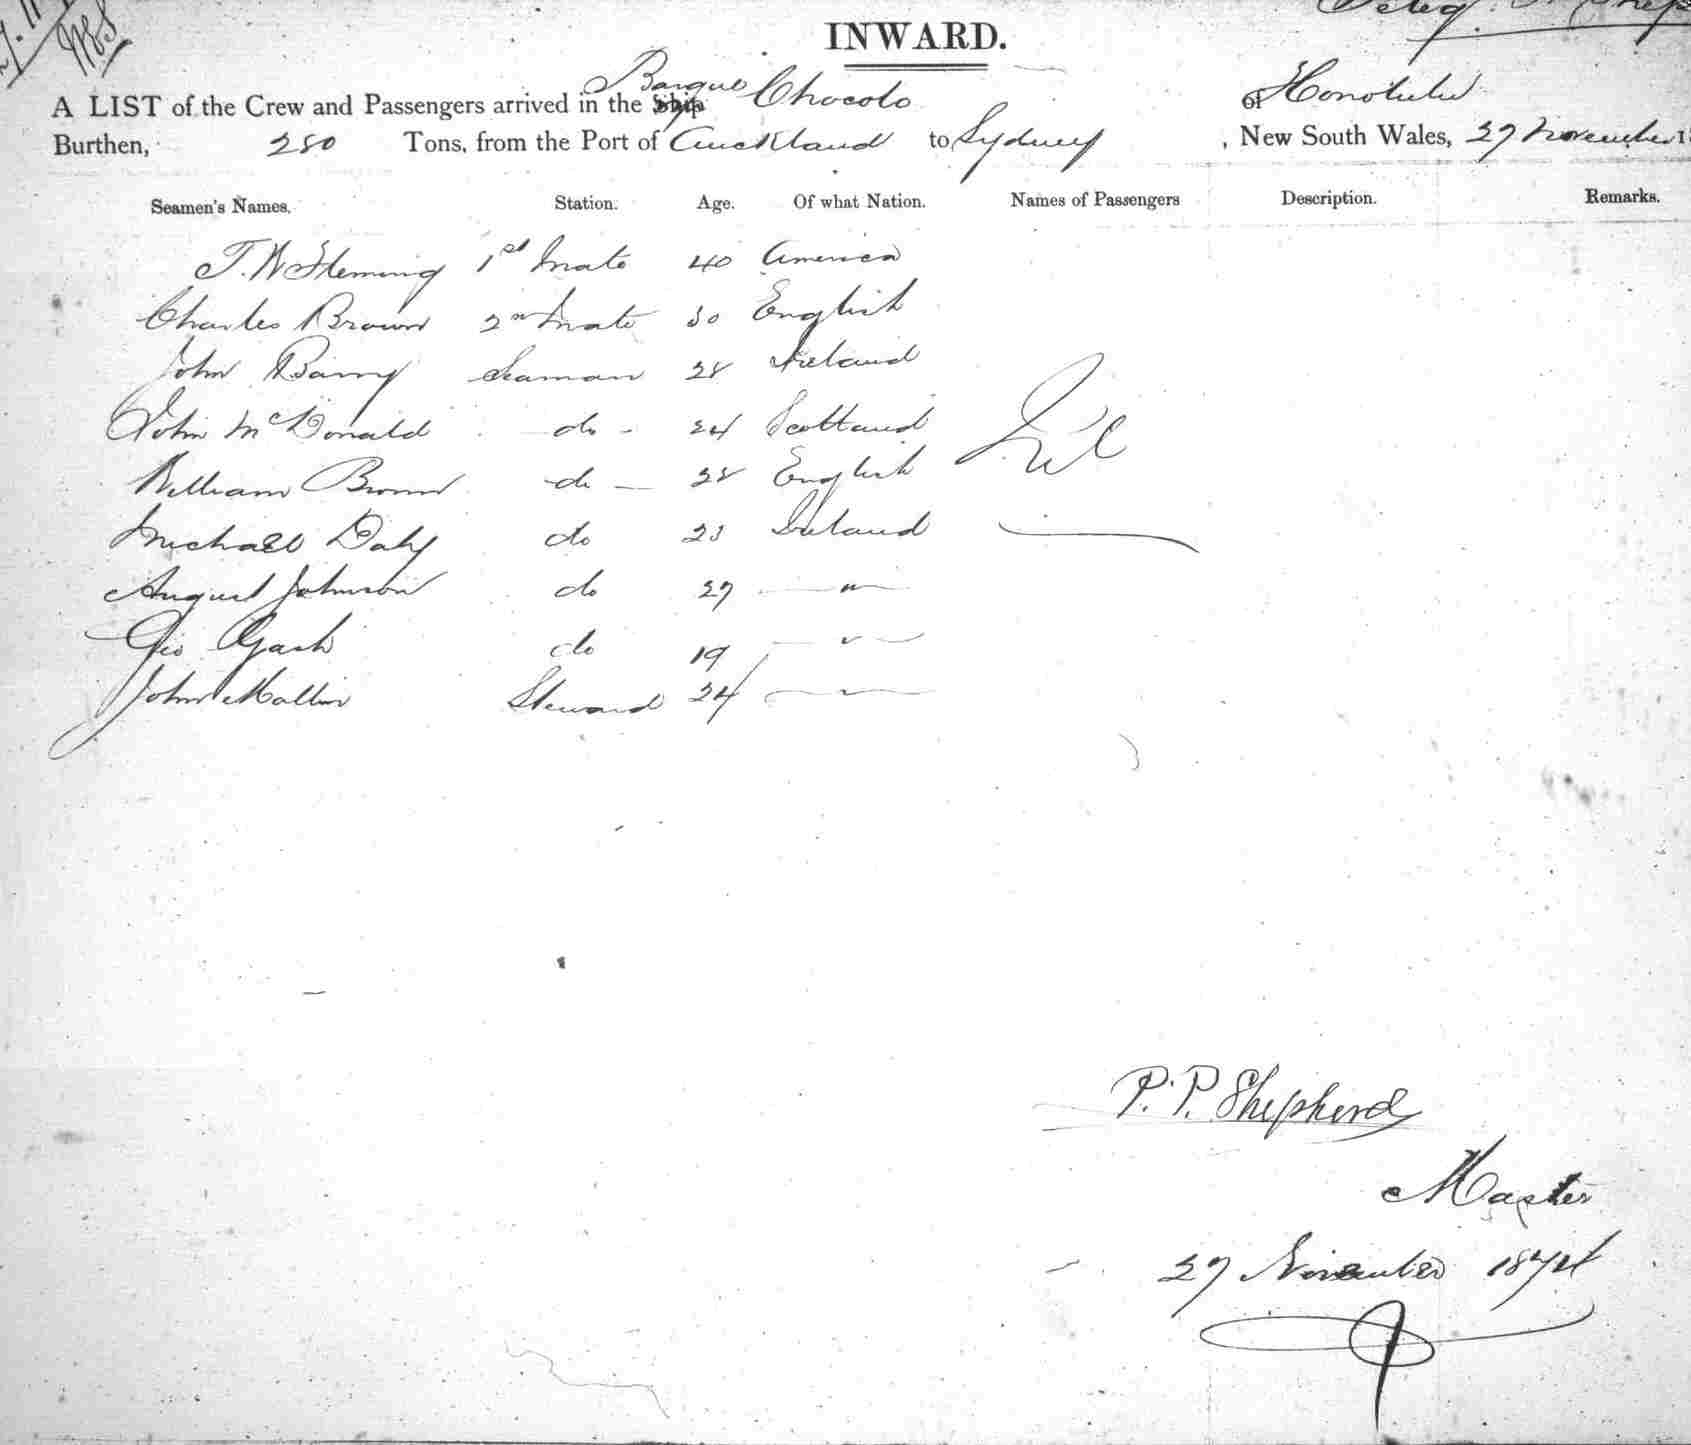 INWARD.
A LIST of the Crew and Passengers arrived in the Ship Barque Chocolo of Honolulu
Burthen, 280 Tons, from the Port of Auckland to Sydney, New South Wales, 27 November
Seamen's Names. Station. Age. Of what Nation. Names of Passengers Description. Remarks.
T. W Fleming 1st Mate 40 America
Charles Brown 2n Mate 30 English
John Barry Seaman 28 Ireland
John McDonald do 24 Scotland
William Brown do 28 English
Nil
Michael Daly do 23 Ireland
August Johnson do 27 "
Geo Gash do 19 "
John Mallin Steward 24 "
P. P. Shepherd
Master
27 November 1874